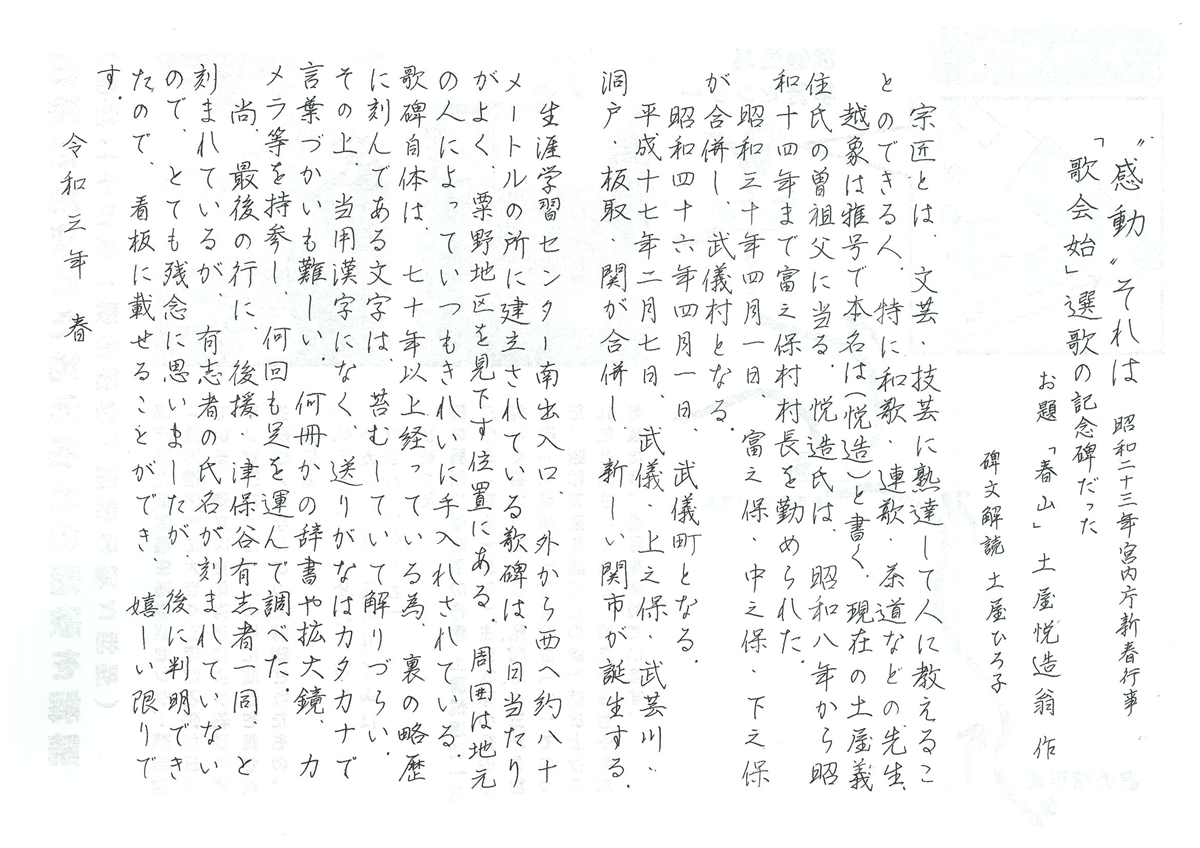 〝感動〟それは 昭和二十三年宮内庁新春行事
「歌会始」選歌の記念碑だった
お題「春山」土屋悦造翁 作
碑文解読 土屋ひろ子
宗匠とは、文芸・技芸に熟達して人に教えるこ
とのできる人、特に和歌・連歌・茶道などの先生.
越象は雅号で本名は(悦造)と書く、現在の土屋義
住氏の曽祖父に当る.悦造氏は、昭和八年から昭
和十四年まで富之保村村長を勤められた.
昭和三十年四月一日、富之保・中之保・下之保
が合併し、武儀村となる.
昭和四十六年四月一日、武儀町となる.
平成十七年二月七日、武儀・上之保・武芸川・
洞戸・板取・関が合併し、新しい関市が誕生する.
生涯学習センター南出入口、外から西へ約八十
メートルの所に建立されている歌碑は、日当たり
がよく、粟野地区を見下す位置にある.周囲は地元
の人によっていつもきれいに手入れされている.
歌碑自体は、七十年以上経っている為、裏の略歴
に刻んである文字は、苔むしていて解りづらい.
その上、当用漢字になく、送りがなはカタカナで
言葉づかいも難しい.何冊かの辞書や拡大鏡、カ
メラ等を持参し、何回も足を運んで調べた.
尚、最後の行に、後援・津保谷有志者一同、と
刻まれているが、有志者の氏名が刻まれていない
ので、とても残念に思いましたが、後に判明でき
たので、看板に載せることができ、嬉しい限りで
す.
令和三年 春